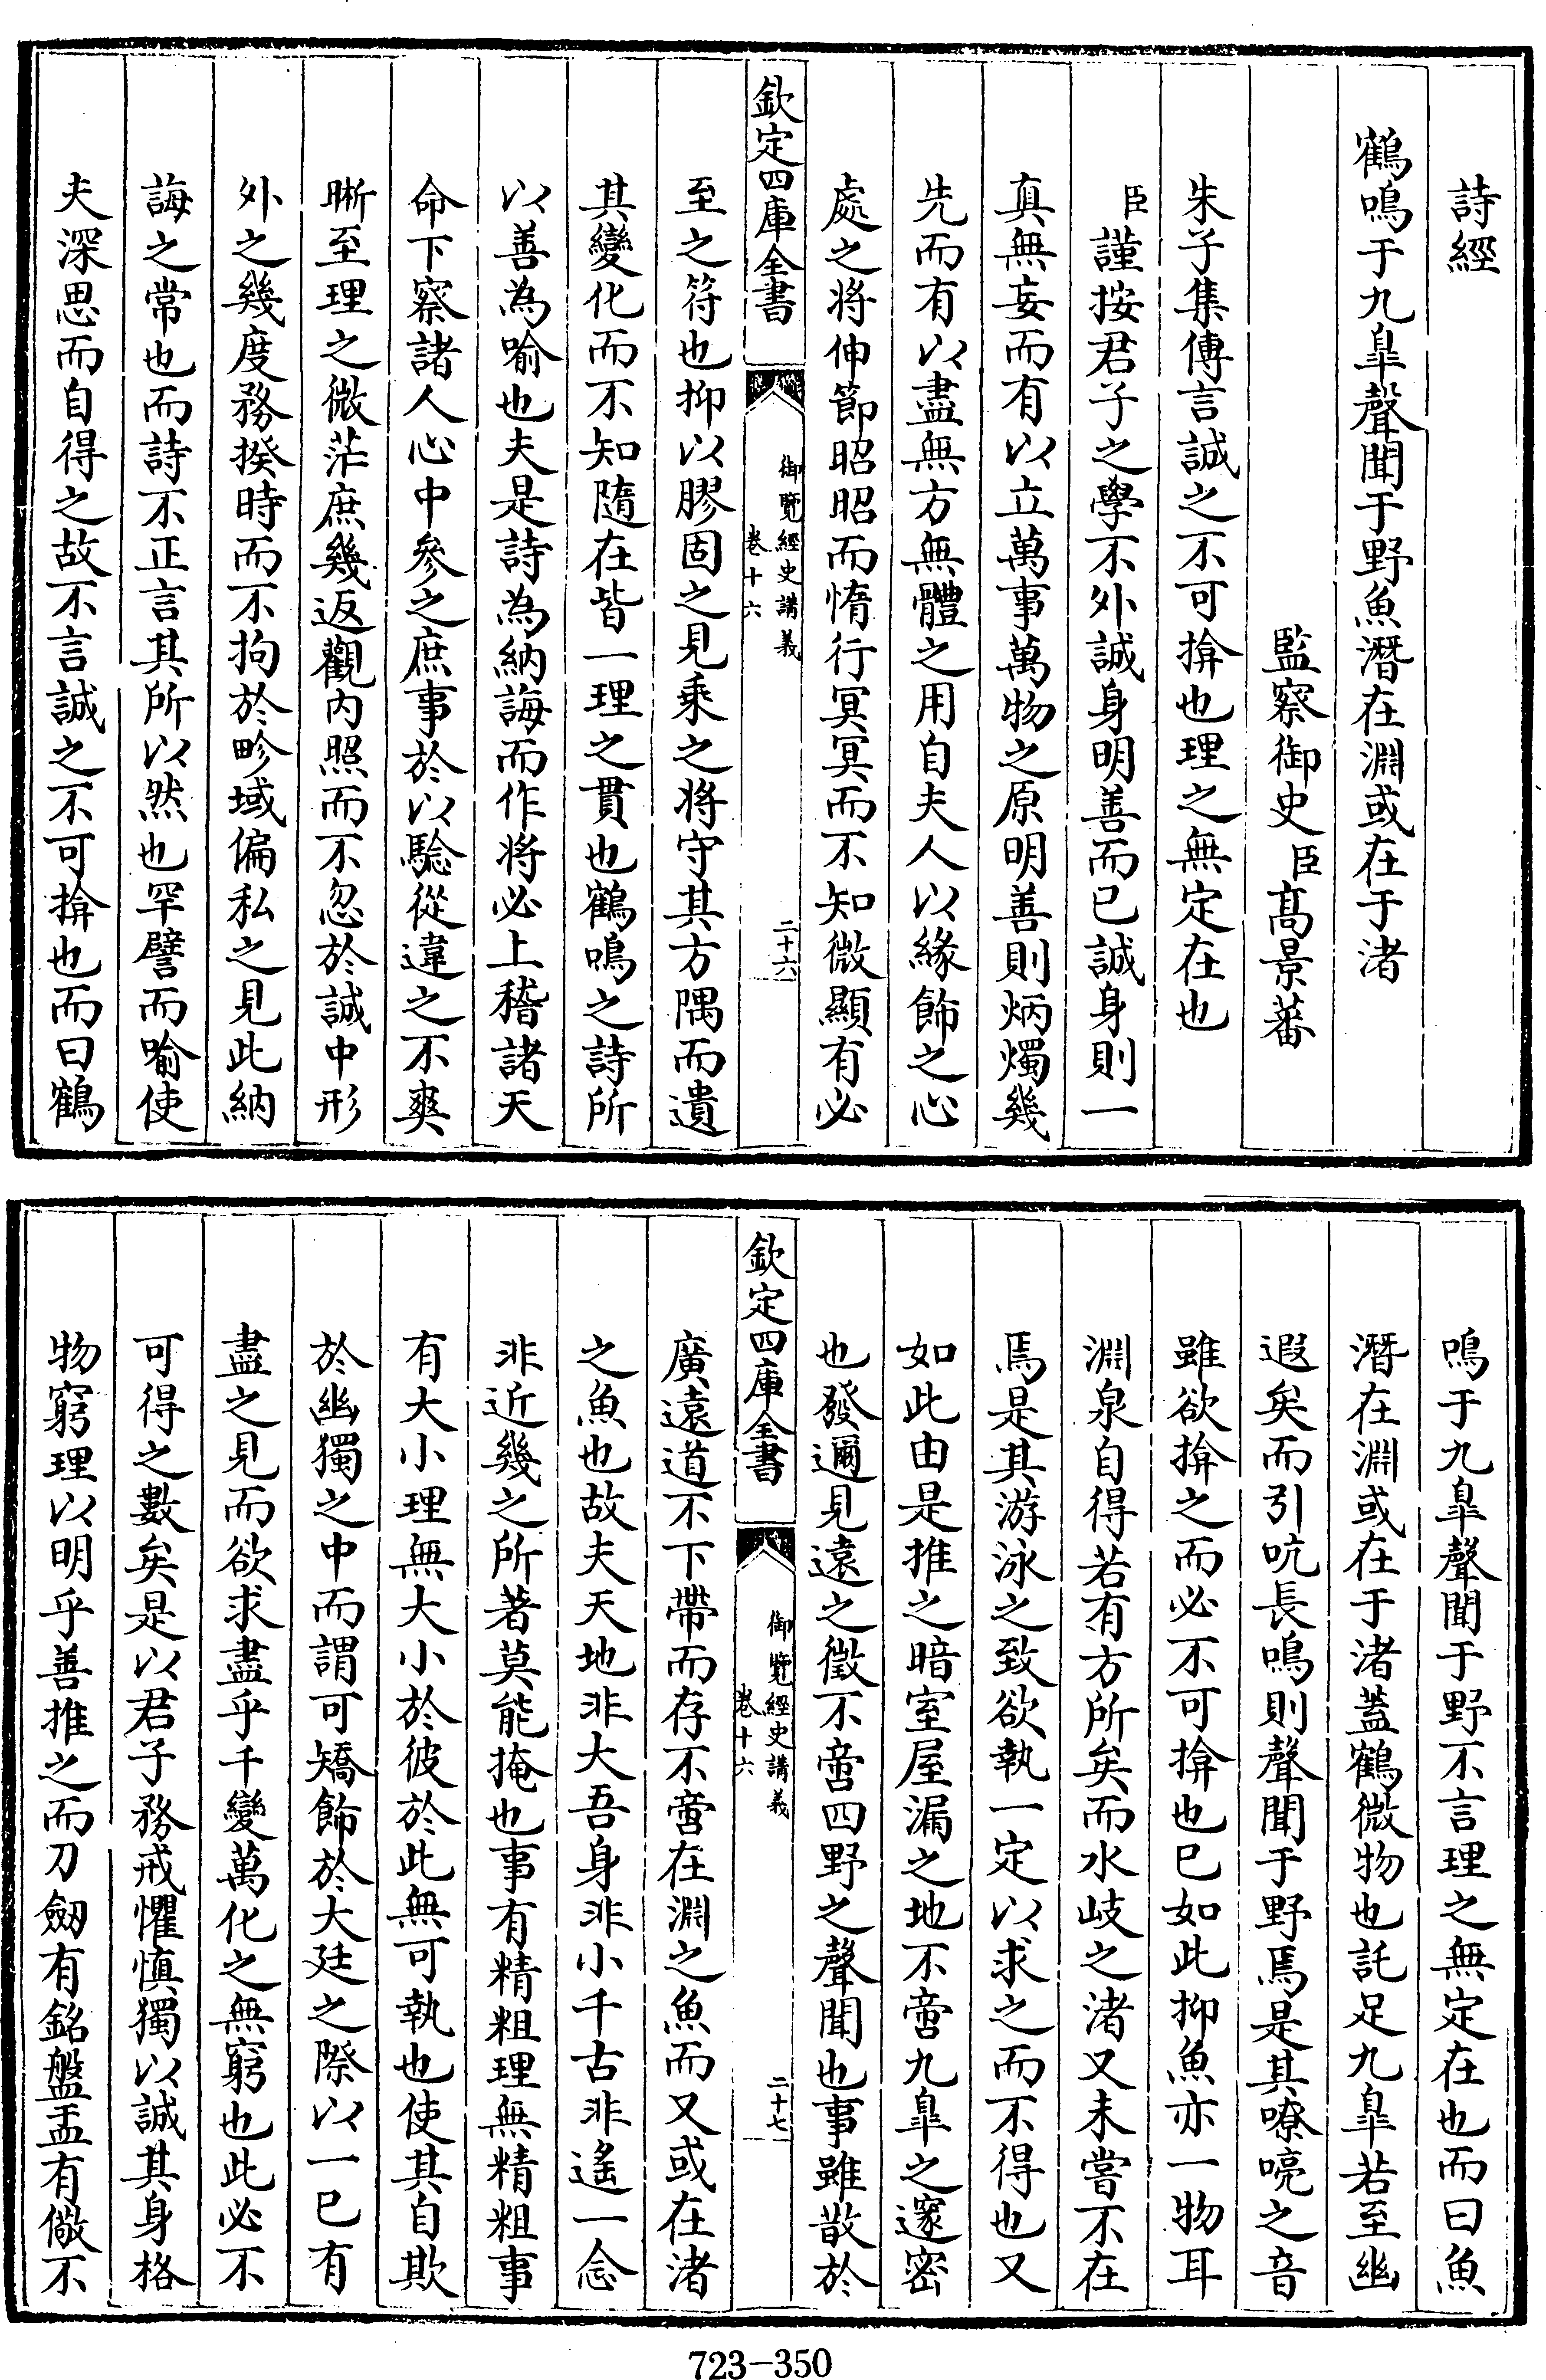 詩經
鶴鳴于九臯聲聞于野魚潛在淵或在于渚
監察御史臣髙景蕃
朱子集傳言誠之不可揜也理之無定在也
臣謹按君子之學不外誠身明善而已誠身則一
真無妄而有以立萬事萬物之原明善則炳燭幾
先而有以盡無方無體之用自夫人以緣飾之心
處之將伸節昭昭而惰行冥冥而不知微顯有必
欽定四庫全書
御覽經史講義
卷十六
二十六
至之符也抑以膠固之見乘之將守其方隅而遺
其變化而不知隨在皆一理之貫也鶴鳴之詩所
以善為喻也夫是詩為納誨而作將必上稽諸天
命下察諸人心中參之庶事於以驗從違之不爽
晰至理之微茫庶幾返觀内照而不忽於誠中形
外之幾度務揆時而不拘於畛域偏私之見此納
誨之常也而詩不正言其所以然也罕譬而喻使
夫深思而自得之故不言誠之不可揜也而曰鶴
鳴于九臯聲聞于野不言理之無定在也而曰魚
潛在淵或在于渚蓋鶴微物也託足九臯若至幽
遐矣而引吭長鳴則聲聞于野焉是其嘹喨之音
雖欲揜之而必不可揜也已如此抑魚亦一物耳
淵泉自得若有方所矣而水歧之渚又未嘗不在
焉是其游泳之致欲執一定以求之而不得也又
如此由是推之暗室屋漏之地不啻九臯之邃密
也發邇見遠之徵不啻四野之聲聞也事雖散於
欽定四庫全書
御覽經史講義
卷十六
二十七
廣遠道不下帶而存不啻在淵之魚而又或在渚
之魚也故夫天地非大吾身非小千古非遙一念
非近幾之所著莫能掩也事有精粗理無精粗事
有大小理無大小於彼於此無可執也使其自欺
於幽獨之中而謂可矯飾於大廷之際以一已有
盡之見而欲求盡乎千變萬化之無窮也此必不
可得之數矣是以君子務戒懼慎獨以誠其身格
物窮理以明乎善推之而刀劒有銘盤盂有儆不
723-350